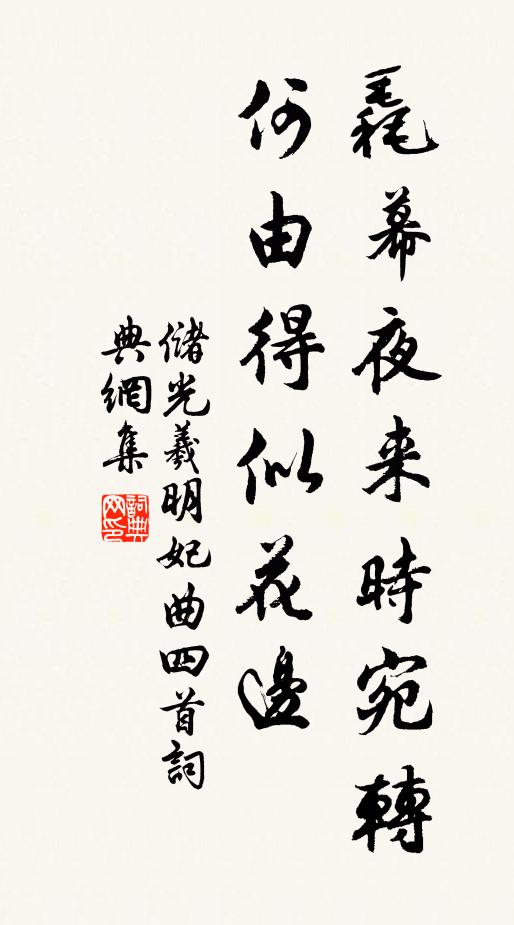 毳幕夜来時宛轉
何由得似花邊
儲光羲明妃曲四首詞
典網集
詞典
网印